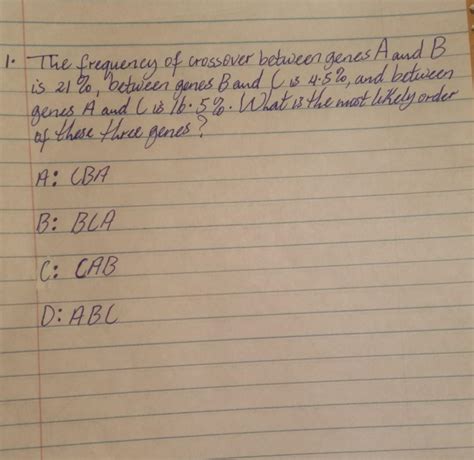 1. The frequency of crossover between genes A and B
is 21%, between genes B and C is 4.5%, and between
genes A and C is 16.5%. What is the most likely order
of these three genes?
A: CBA
B: BCA
C: CAB
D: ABC